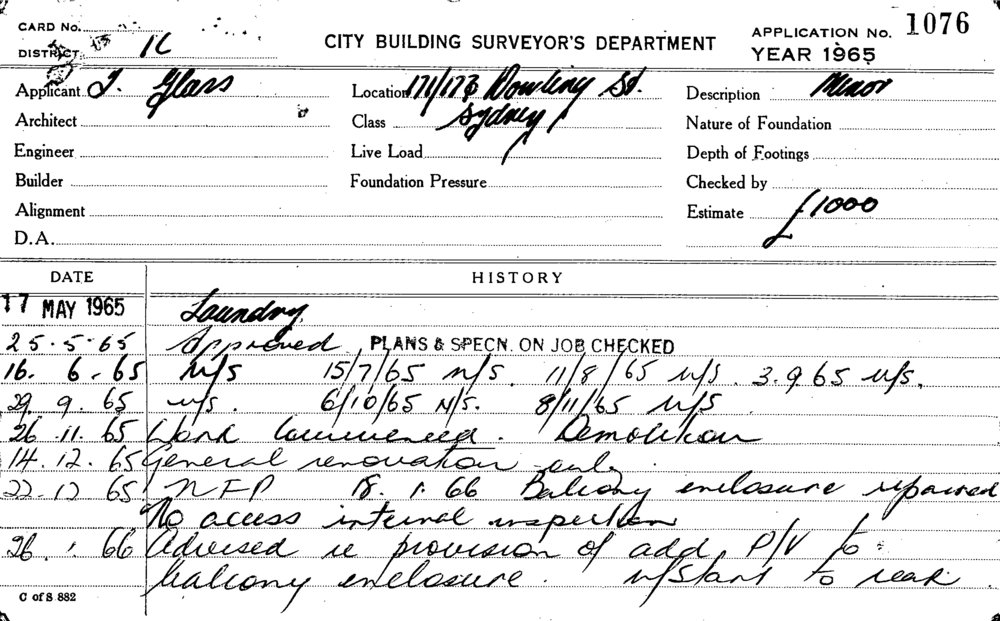 CARD No.
DISTRICT 1C
CITY BUILDING SURVEYOR'S DEPARTMENT
APPLICATION No. 1076
YEAR 1965
Applicant J. Glass
Location 171/173 Dowling St.
Description Minor
Architect
Class Sydney
Nature of Foundation
Engineer
Live Load
Depth of Footings
Builder
Foundation Pressure
Checked by
Alignment
Estimate £1000
D.A.
DATE HISTORY
17 MAY 1965 Laundry.
25.5.65 Approved PLANS & SPECN. ON JOB CHECKED
16. 6. 65 N/S 15/7/65 N/S. 11/8/65 N/S. 3.9.65 N/S.
29. 9. 65 N/S. 6/10/65 N/S. 8/11/65 N/S
26.11.65 Work Commenced. Demolition
14.12.65 General renovation only.
22.12.65 NFP 18.1.66 Balcony enclosure repaired
No access internal inspection
26.1.66 Advised re provision of add P/V to
balcony enclosure. N/Start to rear.
C of S 882